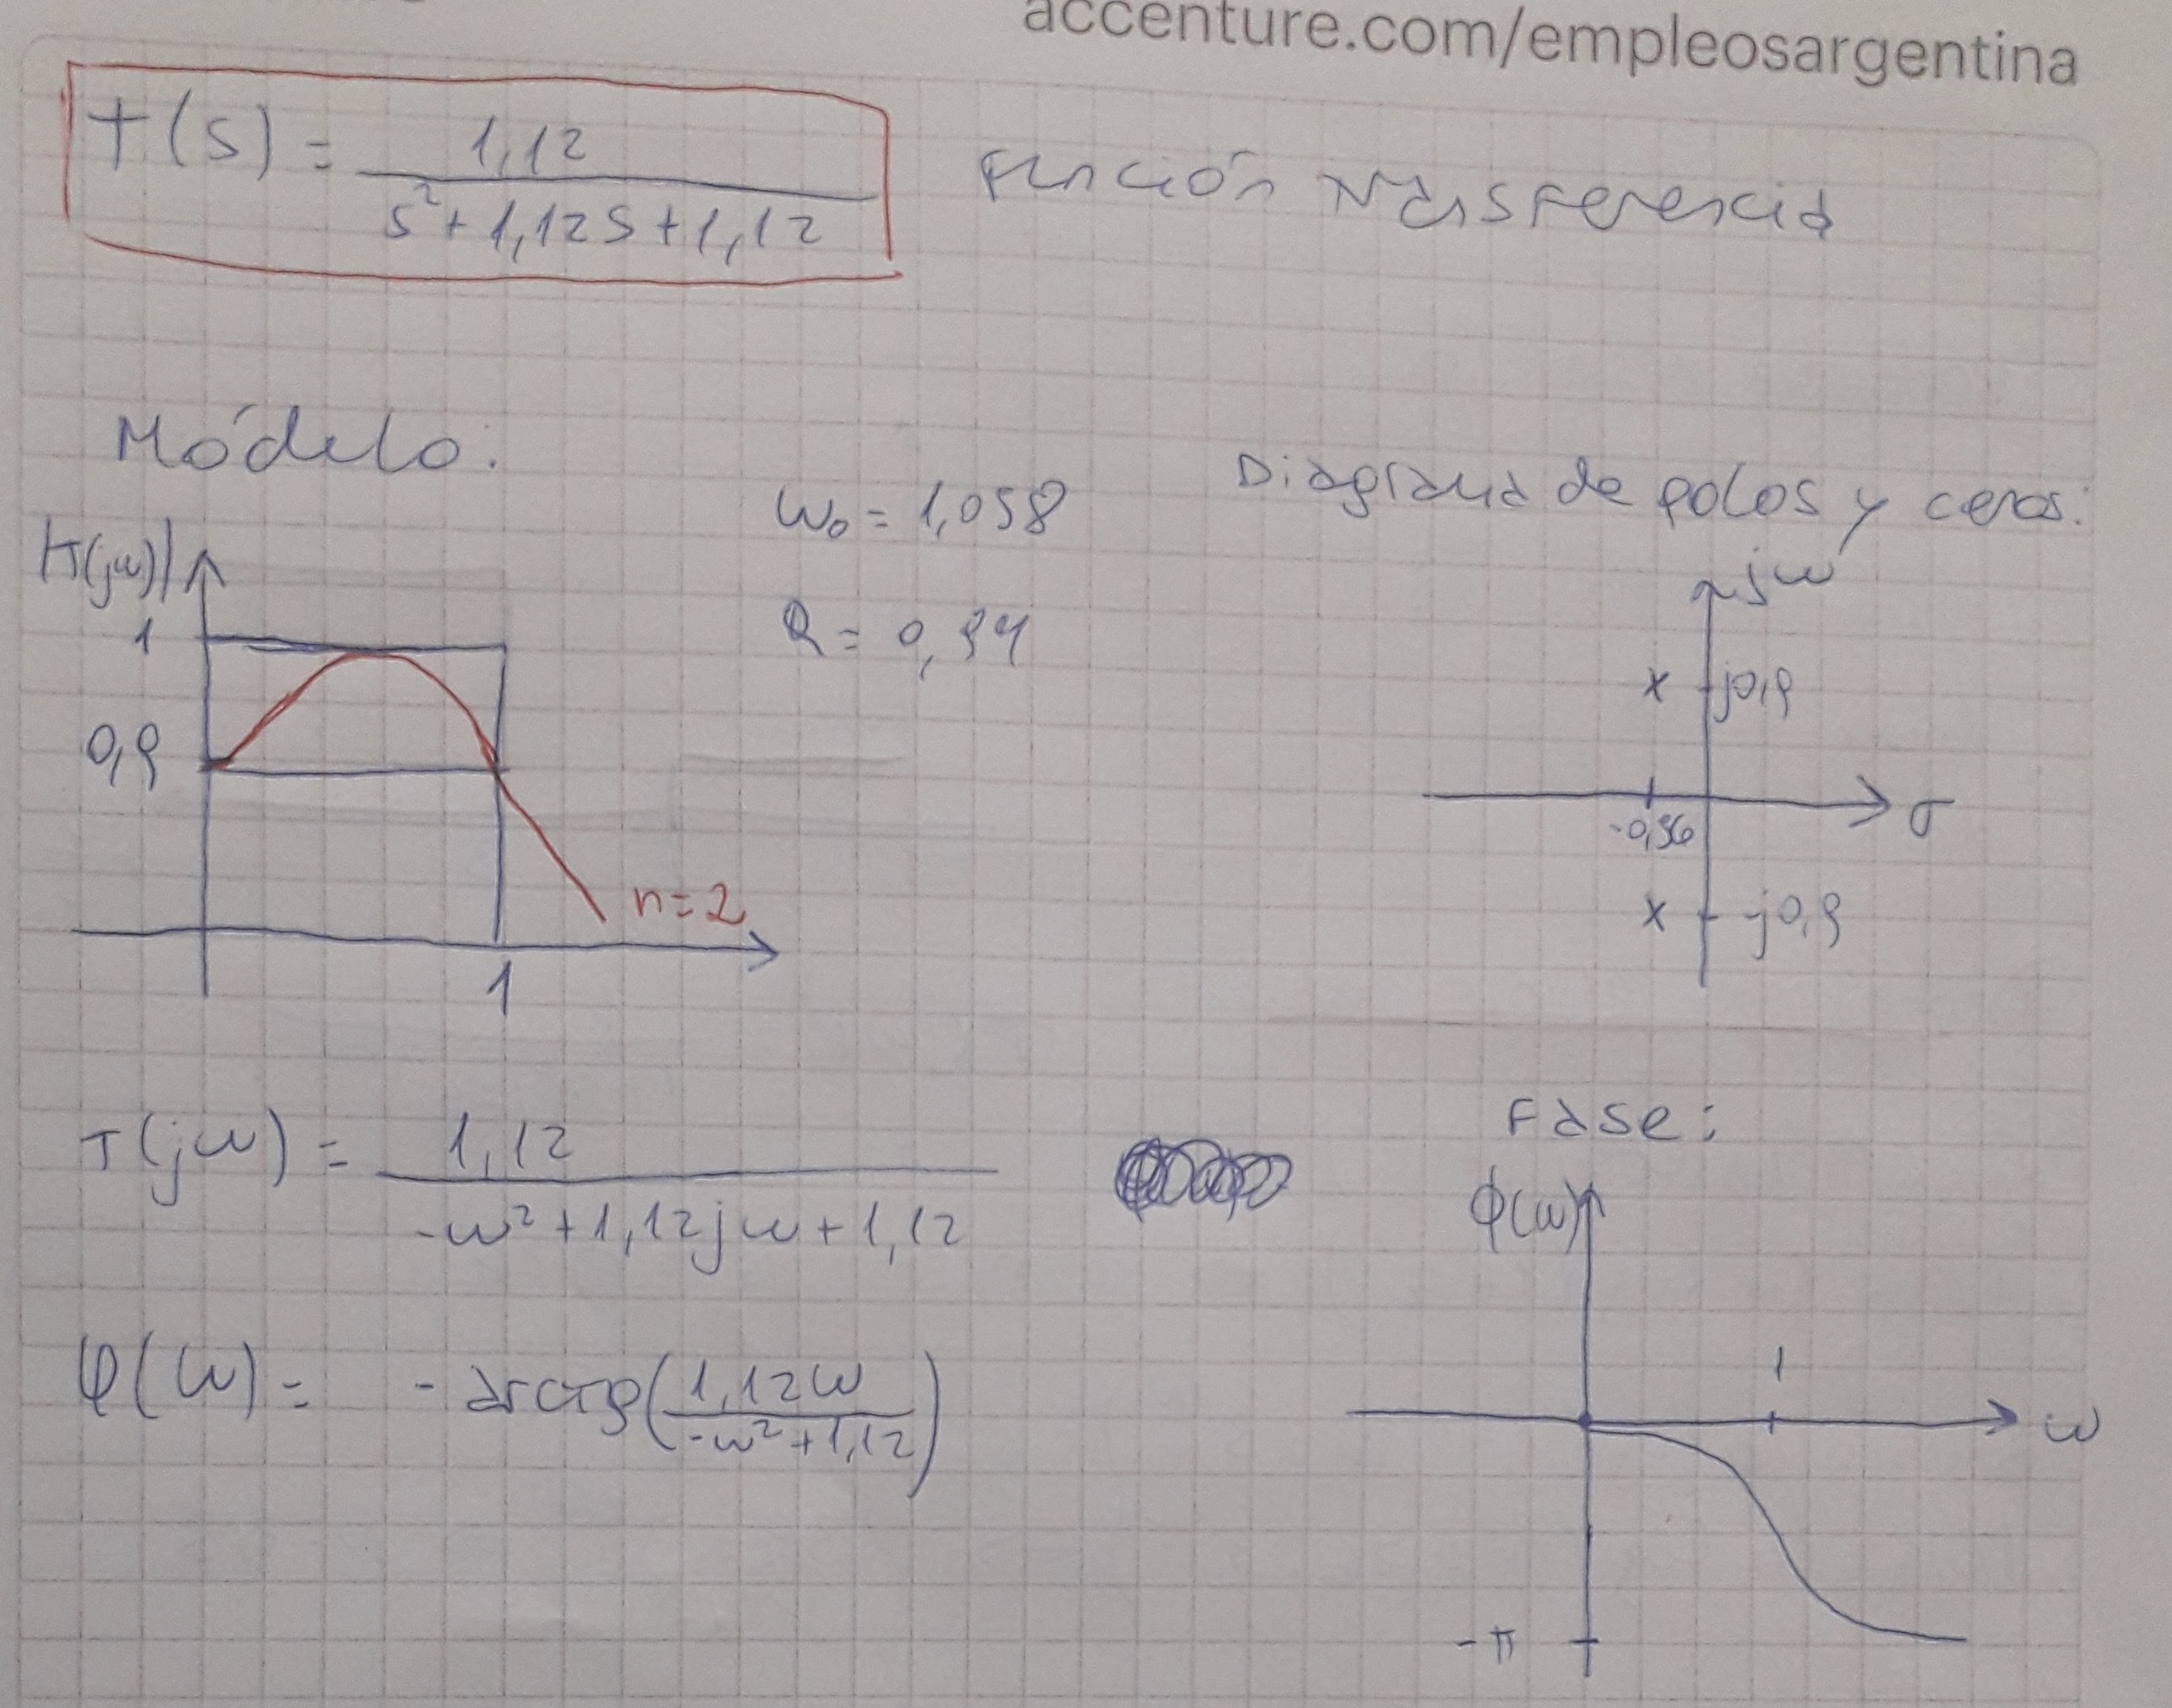 accenture.com/empleosargentina
T(s) = 1,12 / (s² + 1,12s + 1,12)
Función transferencia
Módulo:
ω₀ = 1,058
Q = 0,94
Diagrama de polos y ceros:
|T(jω)|
1
0,9
n=2
1
jω
j0,9
-0,56
σ
-j0,9
T(jω) = 1,12 / (-ω² + 1,12jω + 1,12)
φ(ω) = - arctg(1,12ω / (-ω² + 1,12))
Fase:
ϕ(ω)
1
ω
-π